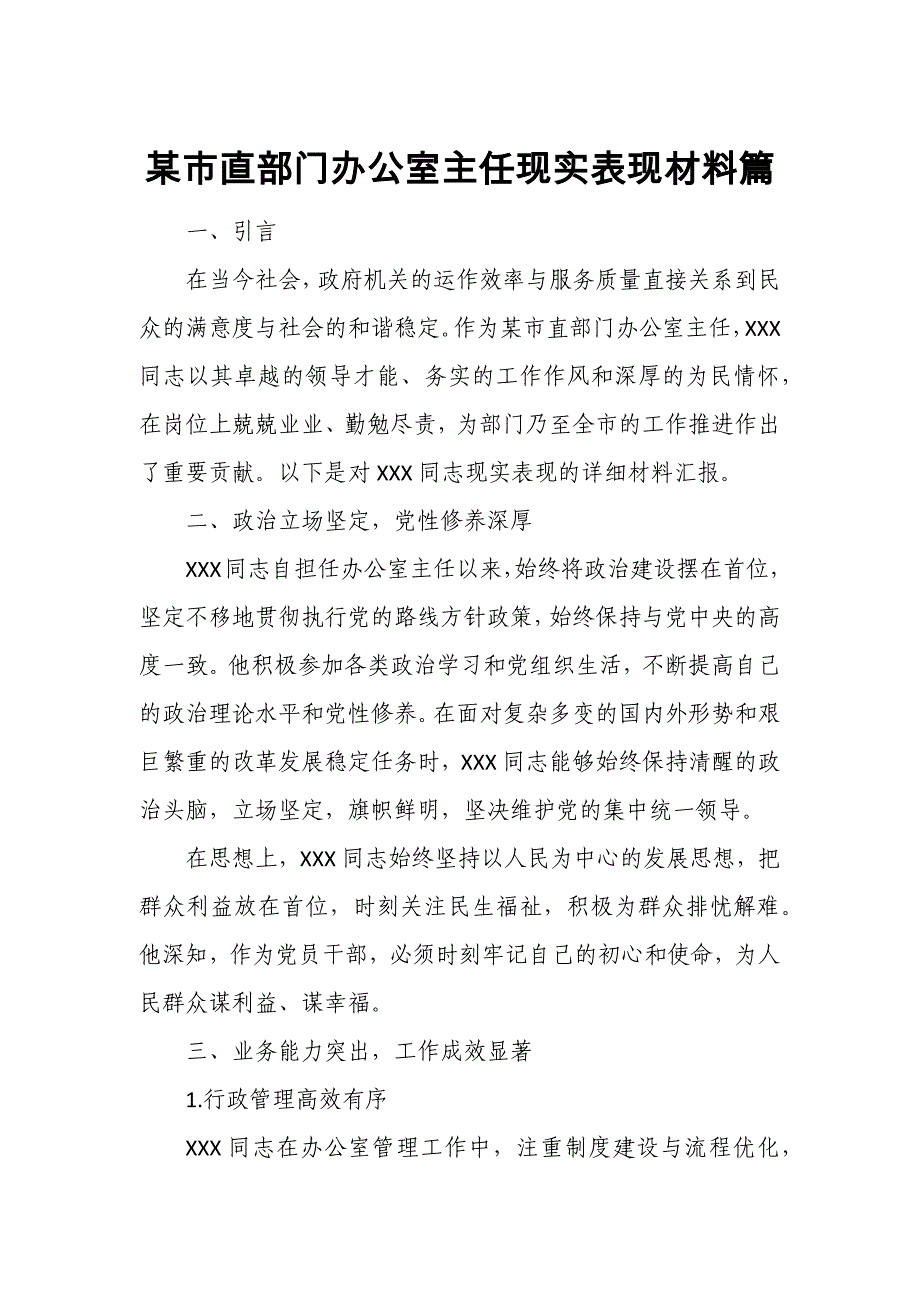 某市直部门办公室主任现实表现材料篇
一、引言
在当今社会，政府机关的运作效率与服务质量直接关系到民
众的满意度与社会的和谐稳定。作为某市直部门办公室主任，XXX
同志以其卓越的领导才能、务实的工作作风和深厚的为民情怀，
在岗位上兢兢业业、勤勉尽责，为部门乃至全市的工作推进作出
了重要贡献。以下是对 XXX 同志现实表现的详细材料汇报。
二、政治立场坚定，党性修养深厚
XXX 同志自担任办公室主任以来，始终将政治建设摆在首位，
坚定不移地贯彻执行党的路线方针政策，始终保持与党中央的高
度一致。他积极参加各类政治学习和党组织生活，不断提高自己
的政治理论水平和党性修养。在面对复杂多变的国内外形势和艰
巨繁重的改革发展稳定任务时，XXX 同志能够始终保持清醒的政
治头脑，立场坚定，旗帜鲜明，坚决维护党的集中统一领导。
在思想上，XXX 同志始终坚持以人民为中心的发展思想，把
群众利益放在首位，时刻关注民生福祉，积极为群众排忧解难。
他深知，作为党员干部，必须时刻牢记自己的初心和使命，为人
民群众谋利益、谋幸福。
三、业务能力突出，工作成效显著
1.行政管理高效有序
XXX 同志在办公室管理工作中，注重制度建设与流程优化，